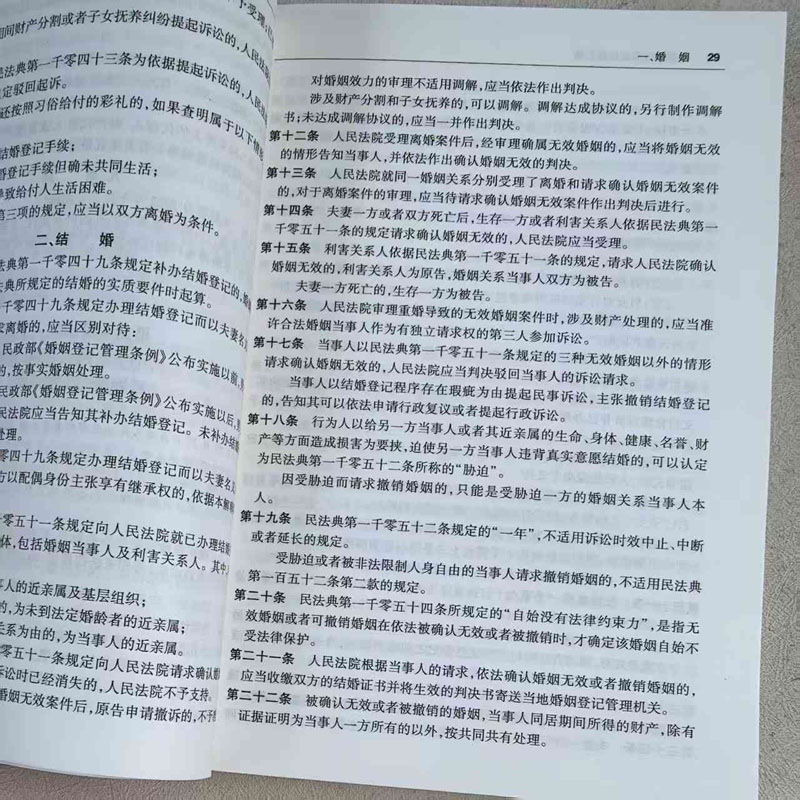 予受理;已
间财产分割或者子女抚养纠纷提起诉讼的,人民法
民法典第一千零四十三条为依据提起诉讼的,人民法
定驳回起诉。
还按照习俗给付的彩礼的,如果查明属于以下情
结婚登记手续;
登记手续但确未共同生活;
导致给付人生活困难。
第三项的规定,应当以双方离婚为条件。
二、结 婚
法典第一千零四十九条规定补办结婚登记的,
典所规定的结婚的实质要件时起算。
零四十九条规定办理结婚登记而以夫妻名
求离婚的,应当区别对待:
民政部《婚姻登记管理条例》公布实施以前,
的,按事实婚姻处理。
民政部《婚姻登记管理条例》公布实施以后,
民法院应当告知其补办结婚登记。未补办结
处理。
零四十九条规定办理结婚登记而以夫妻名
方以配偶身份主张享有继承权的,依据本解释
零五十一条规定向人民法院就已办理结
体,包括婚姻当事人及利害关系人。其中,
事人的近亲属及基层组织;
的,为未到法定婚龄者的近亲属;
关系为由的,为当事人的近亲属。
零五十一条规定向人民法院请求确认
诉讼时已经消失的,人民法院不予支持。
婚姻无效案件后,原告申请撤诉的,不予
一、婚 姻 29
对婚姻效力的审理不适用调解,应当依法作出判决。
涉及财产分割和子女抚养的,可以调解。调解达成协议的,另行制作调解
书;未达成调解协议的,应当一并作出判决。
第十二条 人民法院受理离婚案件后,经审理确属无效婚姻的,应当将婚姻无效
的情形告知当事人,并依法作出确认婚姻无效的判决。
第十三条 人民法院就同一婚姻关系分别受理了离婚和请求确认婚姻无效案件
的,对于离婚案件的审理,应当待请求确认婚姻无效案件作出判决后进行。
第十四条 夫妻一方或者双方死亡后,生存一方或者利害关系人依据民法典第一
千零五十一条的规定请求确认婚姻无效的,人民法院应当受理。
第十五条 利害关系人依据民法典第一千零五十一条的规定,请求人民法院确认
婚姻无效的,利害关系人为原告,婚姻关系当事人双方为被告。
夫妻一方死亡的,生存一方为被告。
第十六条 人民法院审理重婚导致的无效婚姻案件时,涉及财产处理的,应当准
许合法婚姻当事人作为有独立请求权的第三人参加诉讼。
第十七条 当事人以民法典第一千零五十一条规定的三种无效婚姻以外的情形
请求确认婚姻无效的,人民法院应当判决驳回当事人的诉讼请求。
当事人以结婚登记程序存在瑕疵为由提起民事诉讼,主张撤销结婚登记
的,告知其可以依法申请行政复议或者提起行政诉讼。
第十八条 行为人以给另一方当事人或者其近亲属的生命、身体、健康、名誉、财
产等方面造成损害为要挟,迫使另一方当事人违背真实意愿结婚的,可以认定
为民法典第一千零五十二条所称的“胁迫”。
因受胁迫而请求撤销婚姻的,只能是受胁迫一方的婚姻关系当事人本
人。
第十九条 民法典第一千零五十二条规定的“一年”,不适用诉讼时效中止、中断
或者延长的规定。
受胁迫或者被非法限制人身自由的当事人请求撤销婚姻的,不适用民法典
第一百五十二条第二款的规定。
第二十条 民法典第一千零五十四条所规定的“自始没有法律约束力”,是指无
效婚姻或者可撤销婚姻在依法被确认无效或者被撤销时,才确定该婚姻自始不
受法律保护。
第二十一条 人民法院根据当事人的请求,依法确认婚姻无效或者撤销婚姻的,
应当收缴双方的结婚证书并将生效的判决书寄送当地婚姻登记管理机关。
第二十二条 被确认无效或者被撤销的婚姻,当事人同居期间所得的财产,除有
证据证明为当事人一方所有的以外,按共同共有处理。